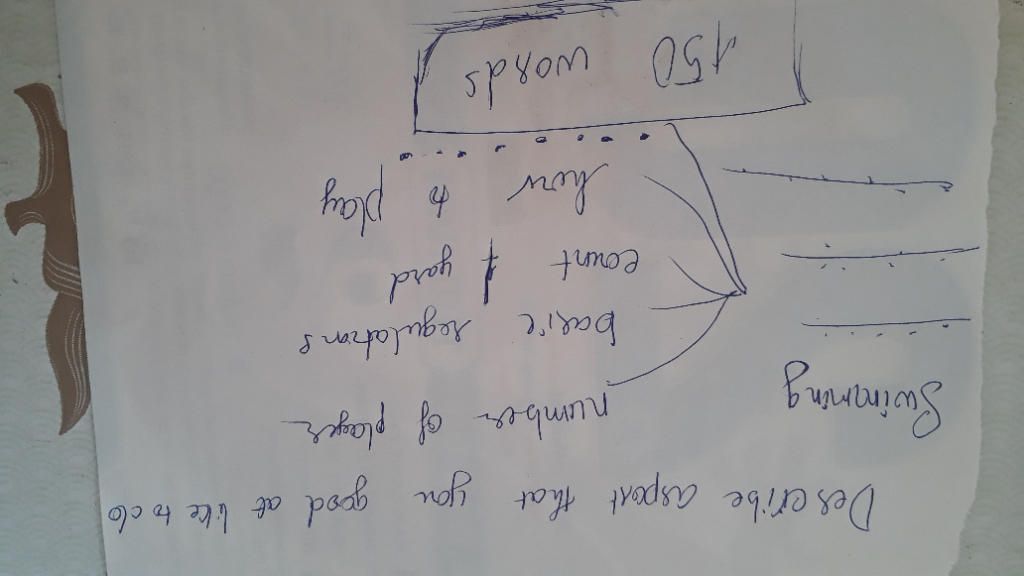 Describe asport that you good at like to do
Swimming
number of player
basic regulations
count yard
how to play
150 words